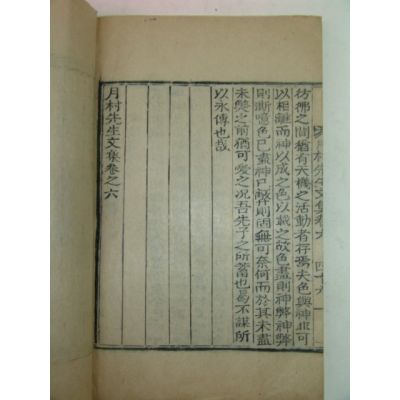 彷彿之間猶有天機之活動者存焉夫色與神非可
以相離而神以成之色以載之故色盡則神弊神弊
則漸噫色已盡神已弊則固無可奈何而於其未盡
未弊之前猶可愛之況吾先子之所蓄也曷不謀所
以永傳也哉
月村先生文集卷之六